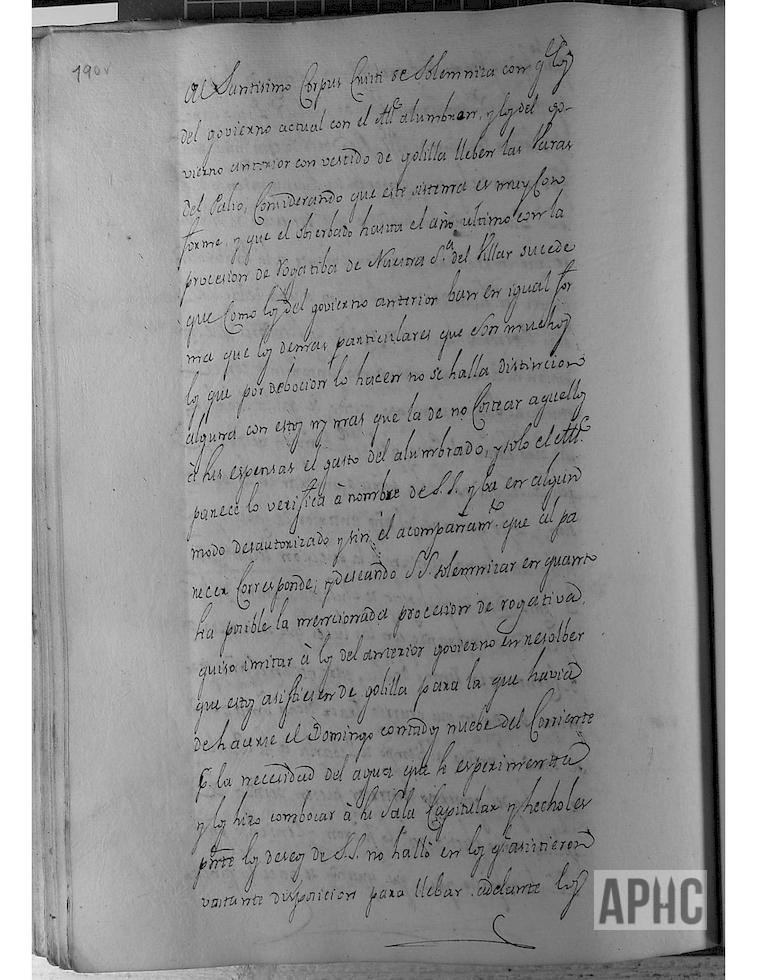 190v
al Santisimo Corpus Cristi se Solemniza con q.e los
del govierno actual con el Alc.e alumbren, y los del go-
vierno anterior con vestido de golilla lleben las Varas
del Palio, Considerando que este sistema es muy Con
forme, y que el obserbado hasta el año ultimo con la
procesion de rogatiba de Nuestra S.a del Pilar sucede
que Como los del govierno anterior ban en igual for
ma que los demas particulares que son muchos
los que por debocion lo hacen no se halla distincion
alguna con estos ny mas que la de no Costear aquellos
à sus espensas el gasto del alumbrado, y solo el Alc.e
parece lo verifica à nombre de S.S. y ba en algun
modo desautorizado y sin el acompañam.to que al pa
recer Corresponde; y deseando S.S. solemnizar en quanto
sea posible la mencionada procesion de rogativa,
quiso imitar à los del anterior govierno en resolber
que estos asistiesen de golilla para la que havia
de hacerse el Domingo contados nuebe del Corriente
p.r la necesidad del agua que se esperimenta,
y los hizo combocar à su Sala Capitular y hecholes
pnte los deseos de S.S. no hallò en los q.e asistieron
vastante disposicion para llebar adelante los
APHC